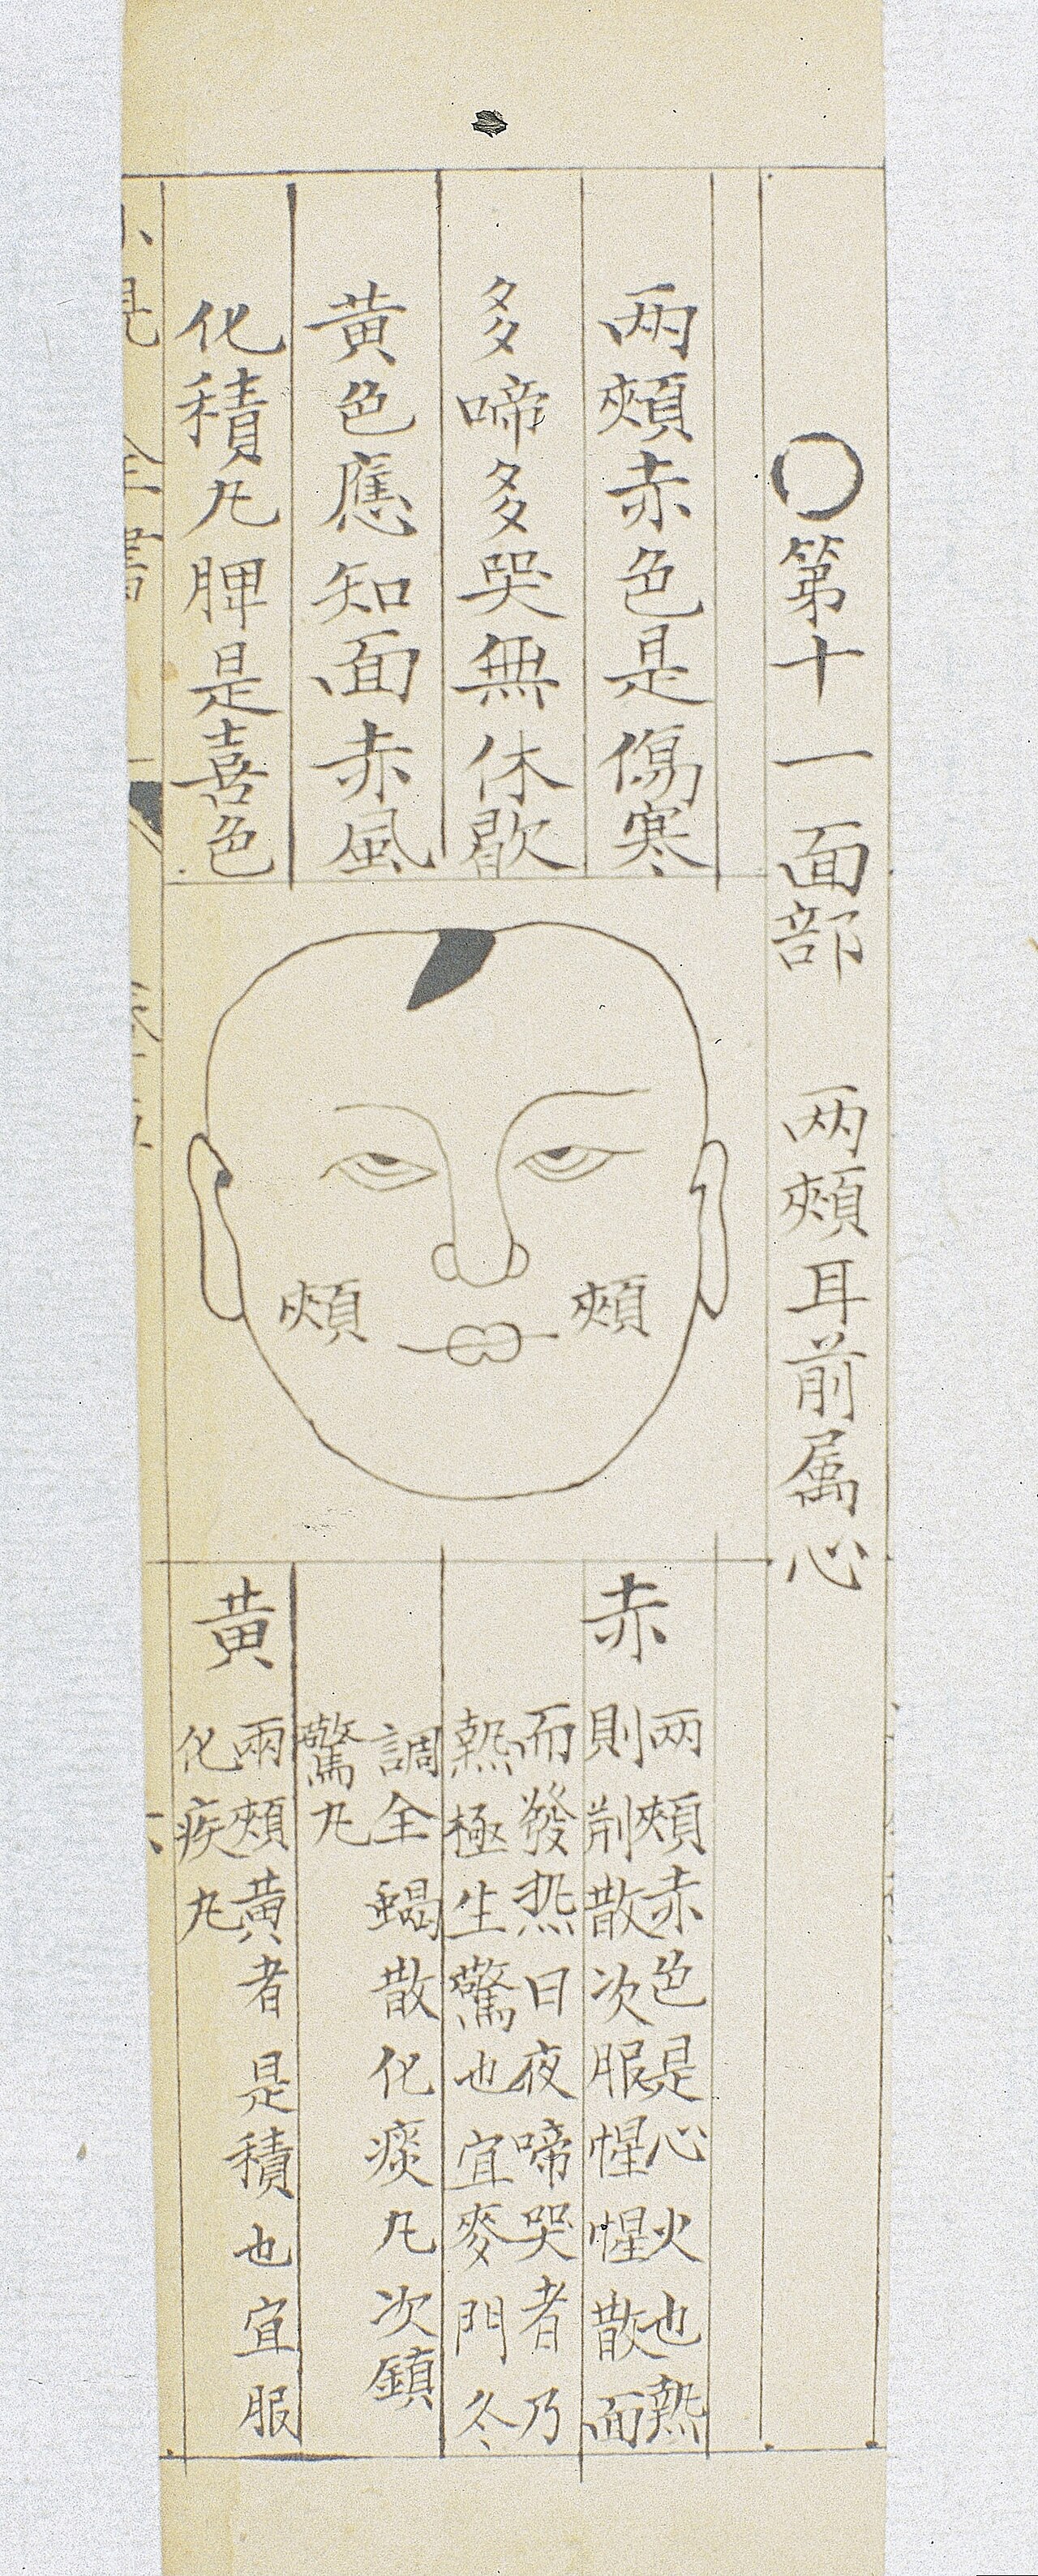 〇第十一面部　兩頰耳前属心
兩頰赤色是傷寒
多啼多哭無休歇
黄色應知面赤風
化積丸脾是喜色
頰
頰
赤
兩頰赤色是心火也熱
則荆散次服惺惺散面
而發热日夜啼哭者乃
熱極生驚也宜麥門冬
調全蝎散化痰丸次鎮
驚丸
黄
兩頰黄者是積也宜服
化疾丸
全書